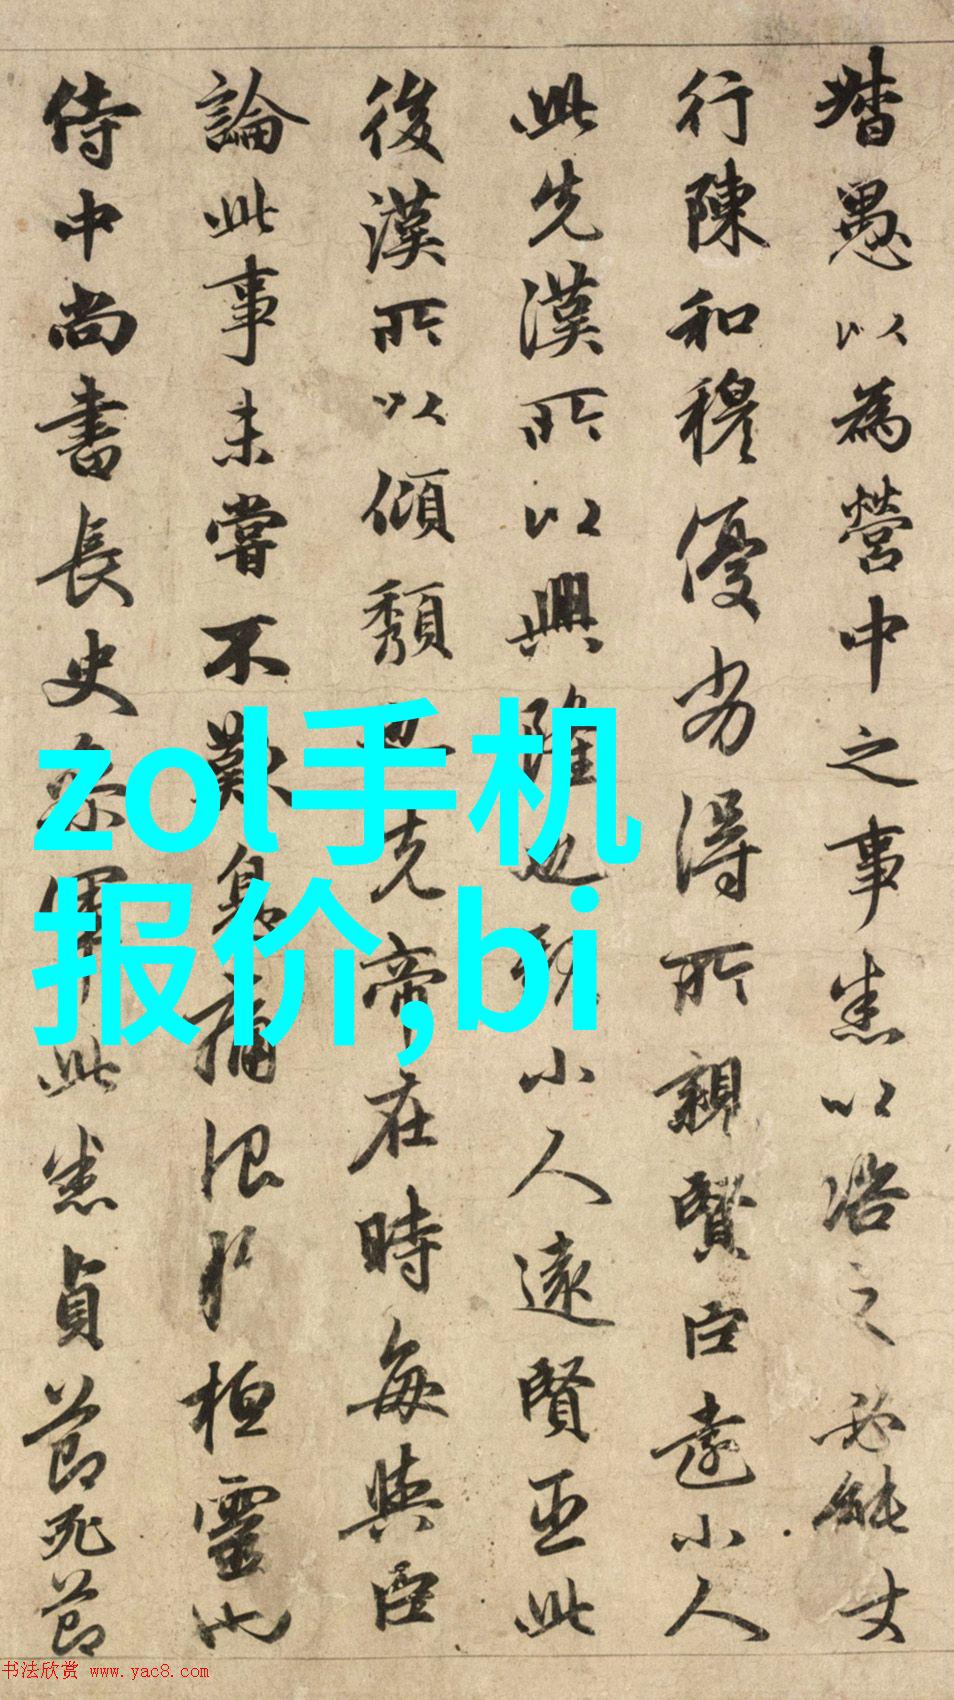 督愚以為營中之事悉以咨之必能
行陳和穆優劣得所親賢臣遠小人
此先漢所以興隆也親小人遠賢臣此
後漢所以傾頹也先帝在時每與臣
論此事未嘗不歎息痛恨於桓靈也
侍中尚書長史參軍此悉貞節死節
zol手机
报价,bi
书法欣赏 www.yac8.com